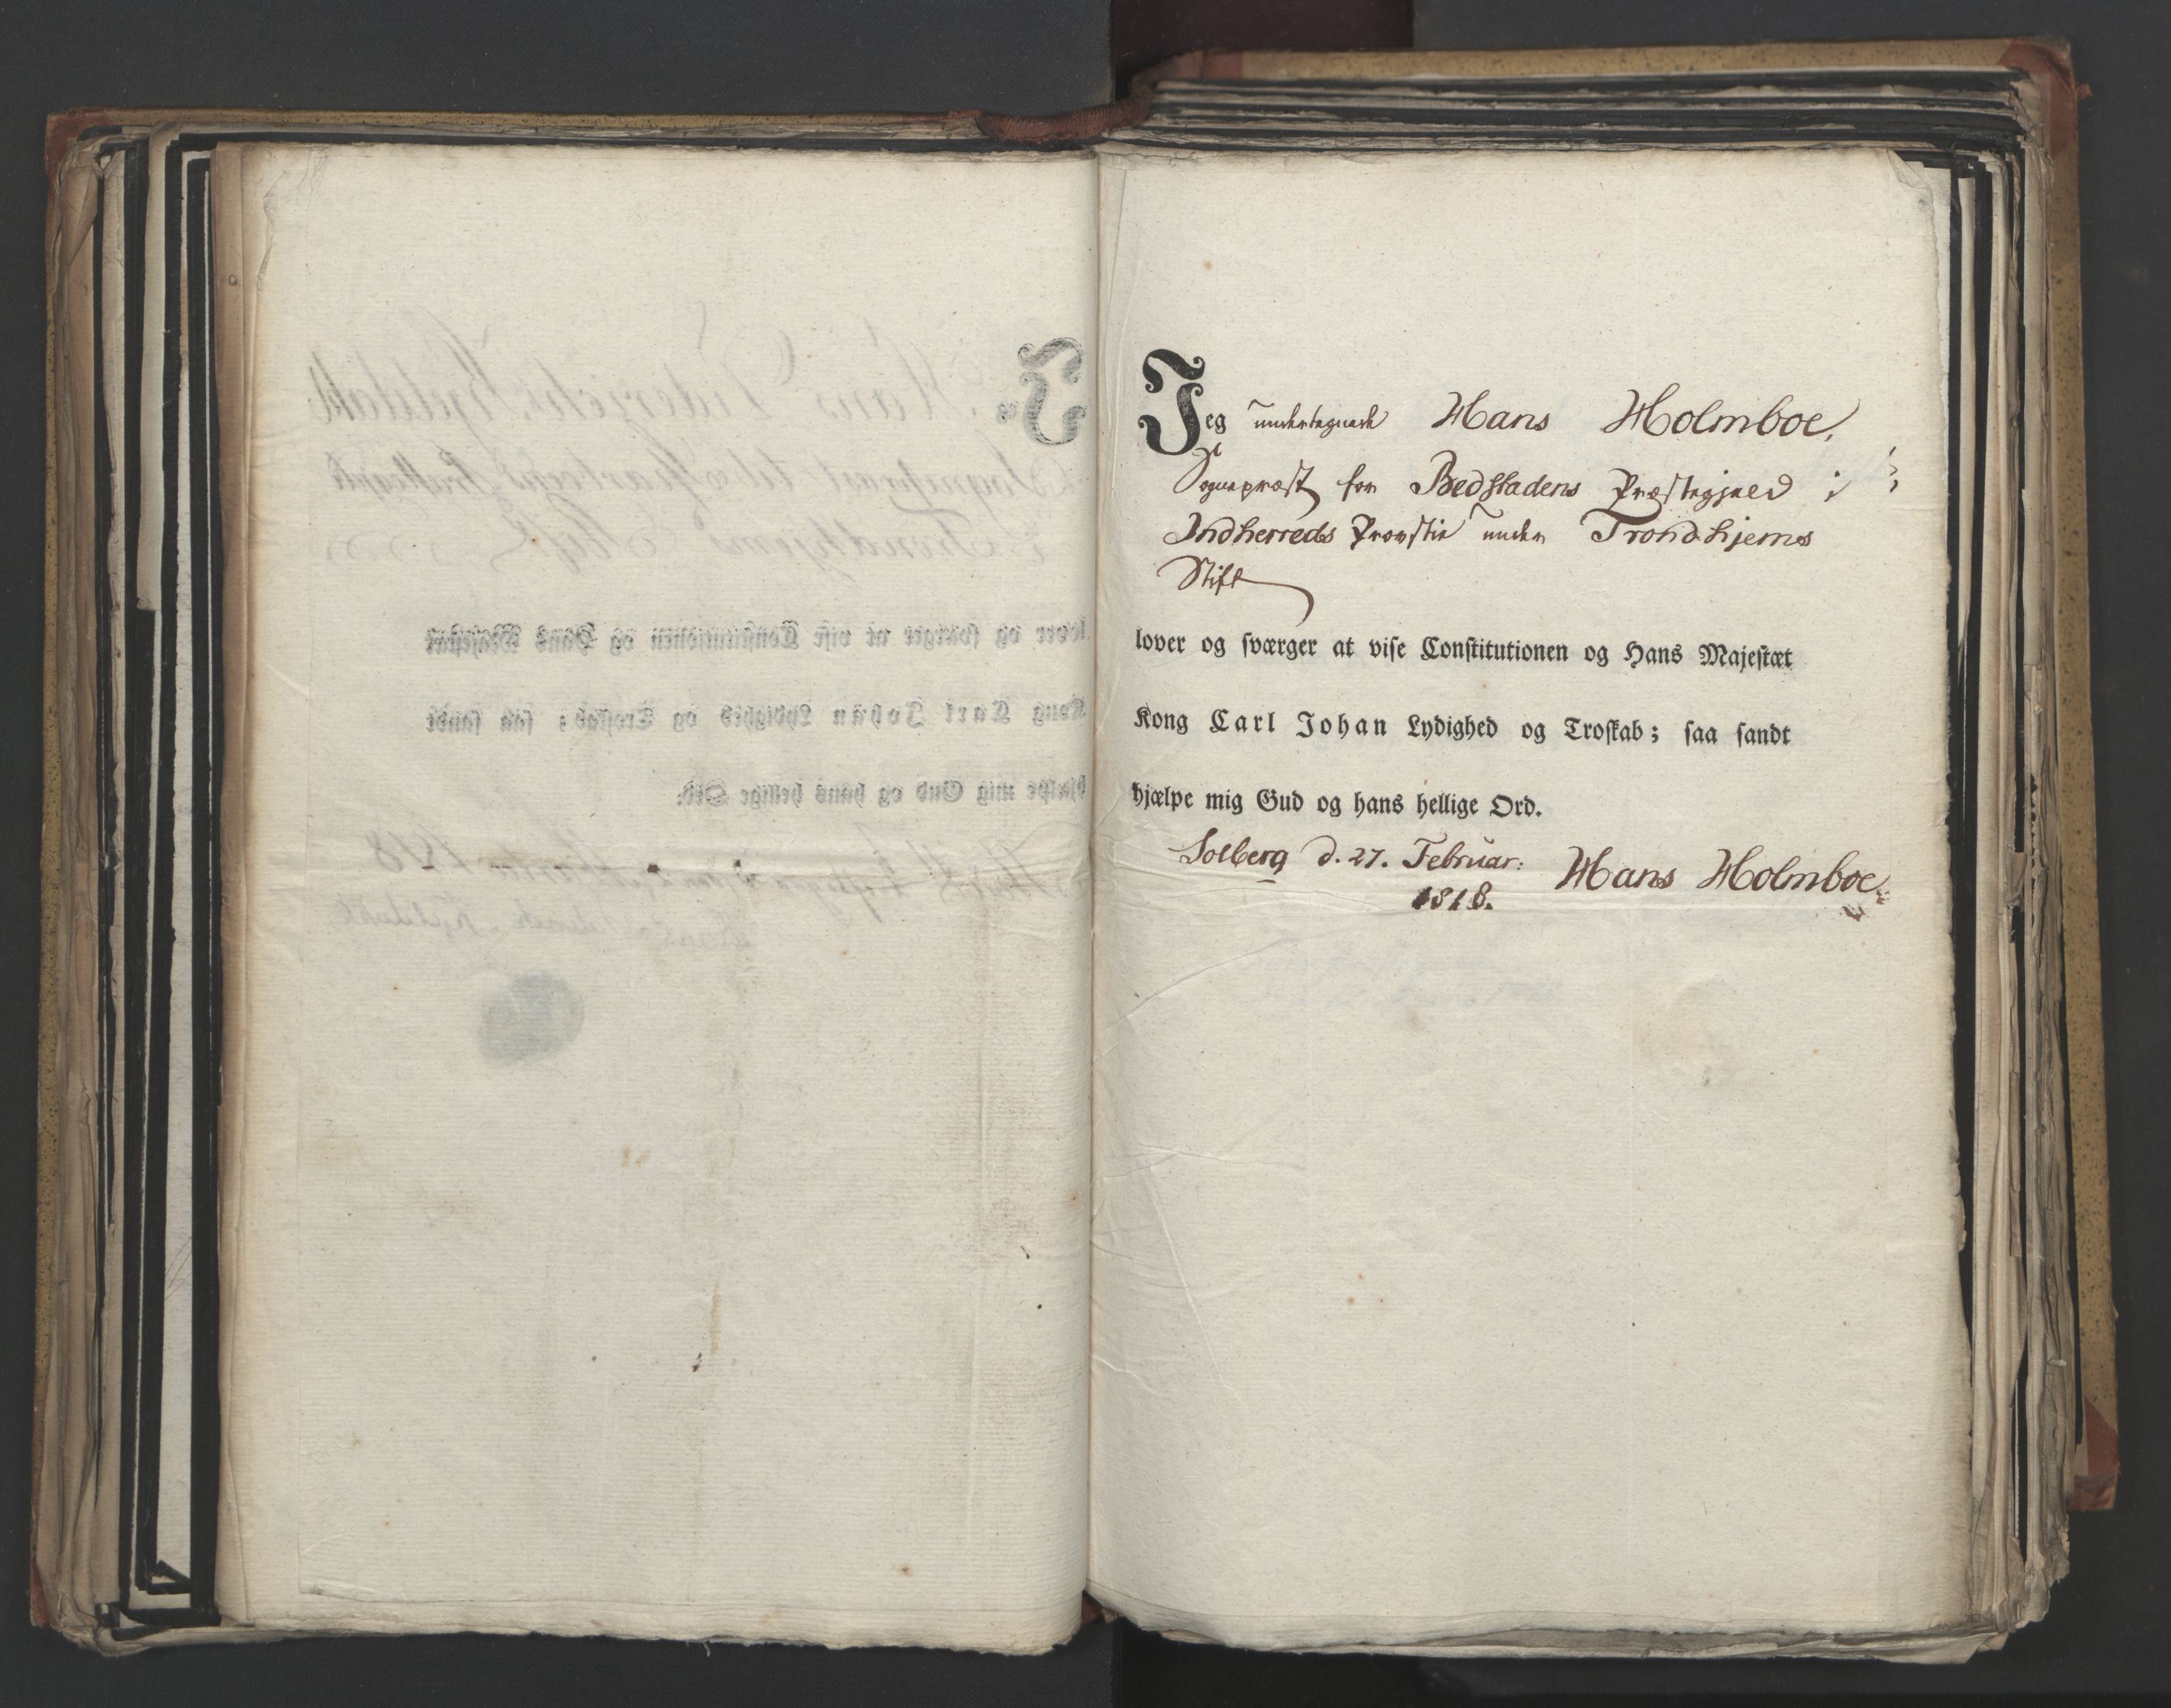 Jeg undertegnede Hans Holmboe,
Sognepræst for Bedstadens Præstegjæld i
Indherreds Provstie under Trondhjems
Stift
lover og sværger at vise Constitutionen og Hans Majestæt
Kong Carl Johan Lydighed og Troskab; saa sandt
hjælpe mig Gud og hans hellige Ord.
Solberg d. 27. Februar:
1818.
Hans Holmboe